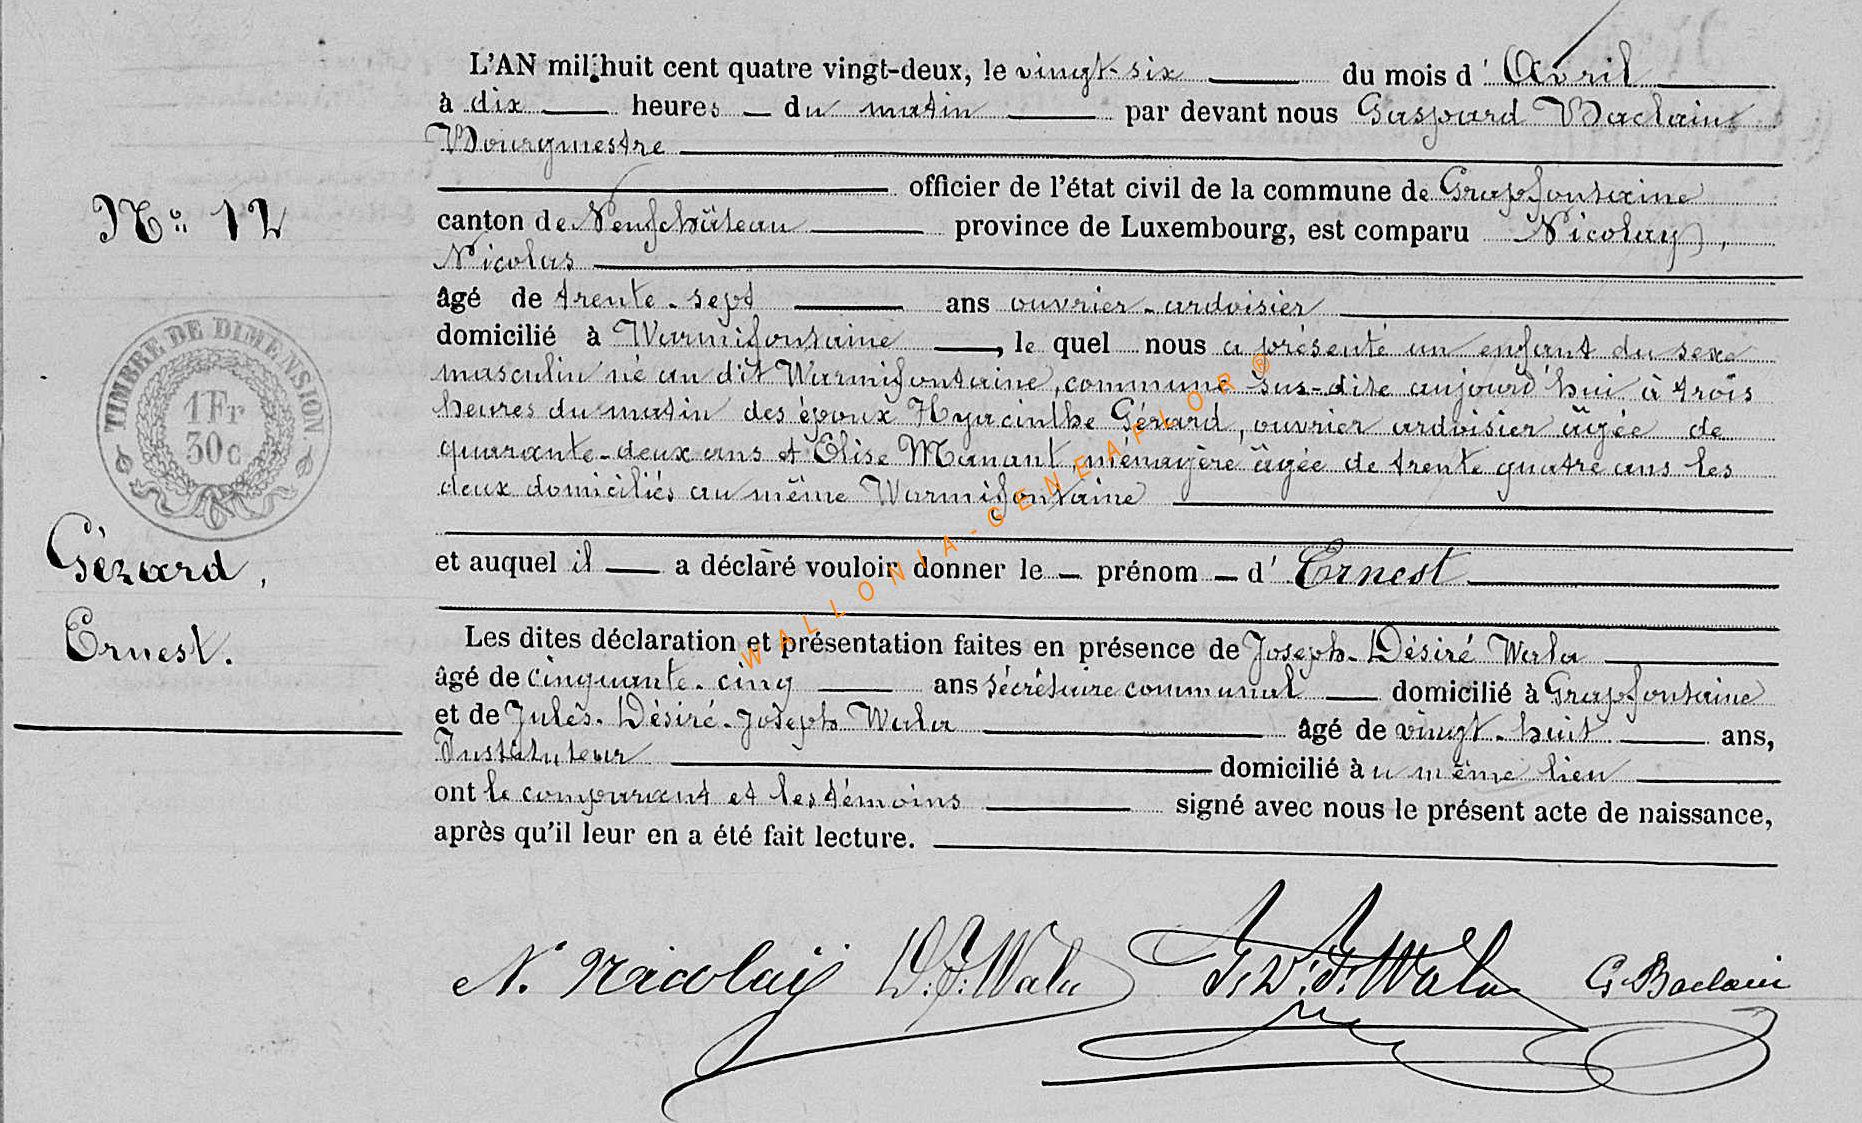 L'AN mil huit cent quatre vingt-deux, le vingt-six du mois d' Avril
à dix heures du matin par devant nous Gaspard Baclain
Bourgmestre
officier de l'état civil de la commune de Grapfontaine
canton de Neufchâteau province de Luxembourg, est comparu Nicolay,
Nicolas
âgé de trente-sept ans ouvrier-ardoisier
domicilié à Warmifontaine, le quel nous a présenté un enfant du sexe
masculin né au dit Warmifontaine, commune sus-dite aujourd'hui à trois
heures du matin des époux Hyacinthe Gérard, ouvrier ardoisier âgée de
quarante-deux ans et Elise Manant, ménagère âgée de trente quatre ans les
deux domiciliés au même Warmifontaine
et auquel il a déclaré vouloir donner le prénom d' Ernest
Les dites déclaration et présentation faites en présence de Joseph-Désiré Wala
âgé de cinquante-cinq ans sécrétaire communal domicilié à Grapfontaine
et de Jules-Désiré-Joseph Wala âgé de vingt-huit ans,
Instituteur domicilié à u même lieu
ont le comparant et les témoins signé avec nous le présent acte de naissance,
après qu'il leur en a été fait lecture.
No: 12
TIMBRE DE DIMENSION.
1 Fr
30 c
Gérard,
Ernest.
N. Nicolay D. J. Wala J. D. J. Wala G. Baclain
WALLONIA-GENEAFLOR ®